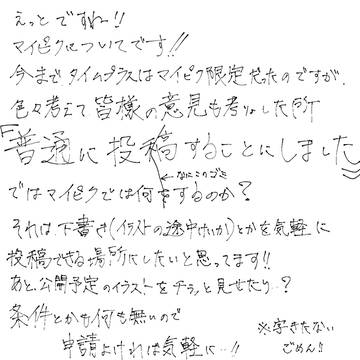 えっとですねー!!
マイピクについてです!!
今までタイムプラスはマイピク限定だったのですが、
色々考えて皆様の意見も考りょした所
『普通に投稿することにしました』
←なにこのゴミ
ではマイピクでは何をするのか?
それは、下書き(イラストの途中けいか)とかを気軽に
投稿できる場所にしたいと思ってます!!
あと、公開予定のイラストをチラッと見せたり…?
条件とかも何も無いので
申請よければ気軽に…!!
※字きたない
ごめん!!